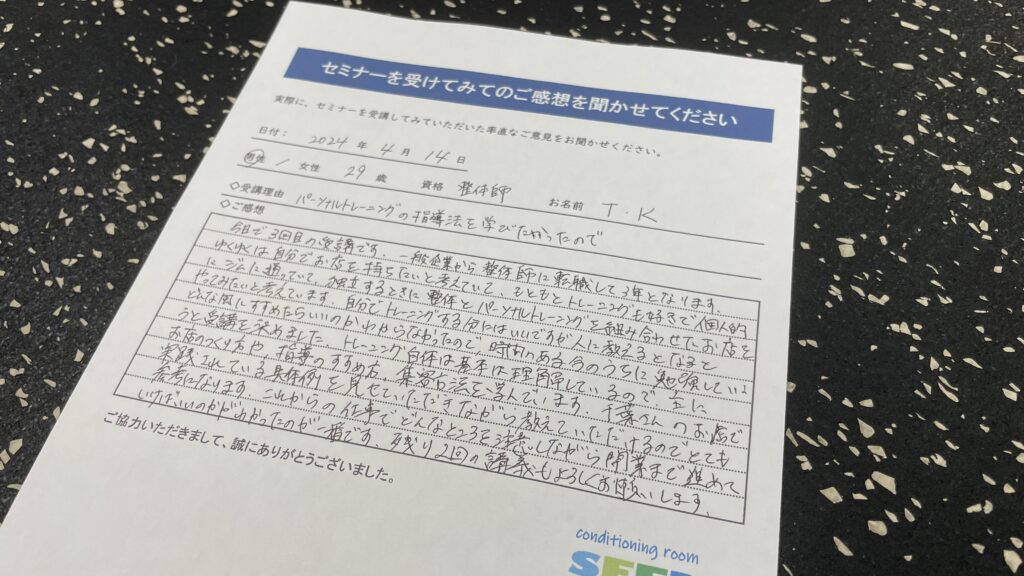 セミナーを受けてみてのご感想を聞かせてください
実際に、セミナーを受講してみていただいた率直なご意見をお聞かせください。
日付： 2024 年 4 月 14 日
男性 / 女性 29 歳 資格 整体師 お名前 T.K
◇受講理由 パーソナルトレーニングの指導法を学びたかったので
◇ご感想
今日で3回目の受講です。一般企業から整体師に転職して3年となります。
ゆくゆくは自分でお店を持ちたいと考えていて、もともとトレーニングも好きで個人的
にジムに通っていて独立するときに整体とパーソナルトレーニングを組み合わせたお店を
やってみたいと考えています。自分でトレーニングする分にはいいですが人に教えるとなると
どんな風にすすめたらいいのかわからなかったので、時間のある今のうちに勉強しよ
うと受講を決めました。トレーニング自体は基本は理解しているので主に
お店のつくり方や、指導のすすめ方、集客方法を学んでいます。千葉さんのお店で
実践されている具体例を見せていただきながら教えていただけるのでとても
参考になります。これからの仕事でどんなところを注意しながら開業まで進めて
いけばいいのかがわかったのが一番です。残り2回の講義もよろしくお願いします。
ご協力いただきまして、誠にありがとうございました。
conditioning room